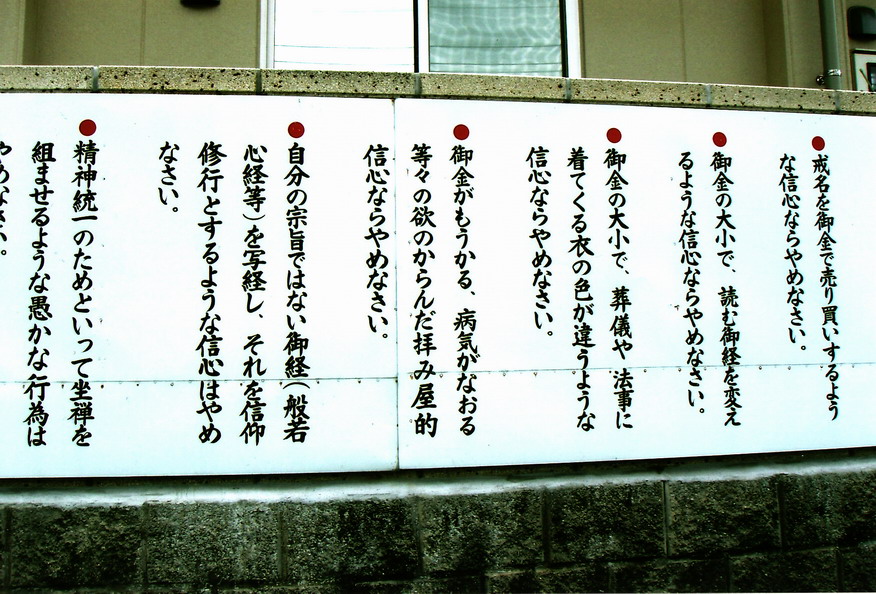 ●戒名を御金で売り買いするよう
な信心ならやめなさい。
●御金の大小で、読む御経を変え
るような信心ならやめなさい。
●御金の大小で、葬儀や法事に
着てくる衣の色が違うような
信心ならやめなさい。
●御金がもうかる、病気がなおる
等々の欲のからんだ拝み屋的
信心ならやめなさい。
●自分の宗旨ではない御経(般若
心経等)を写経し、それを信仰
修行とするような信心はやめ
なさい。
●精神統一のためといって坐禅を
組ませるような愚かな行為は
やめなさい。